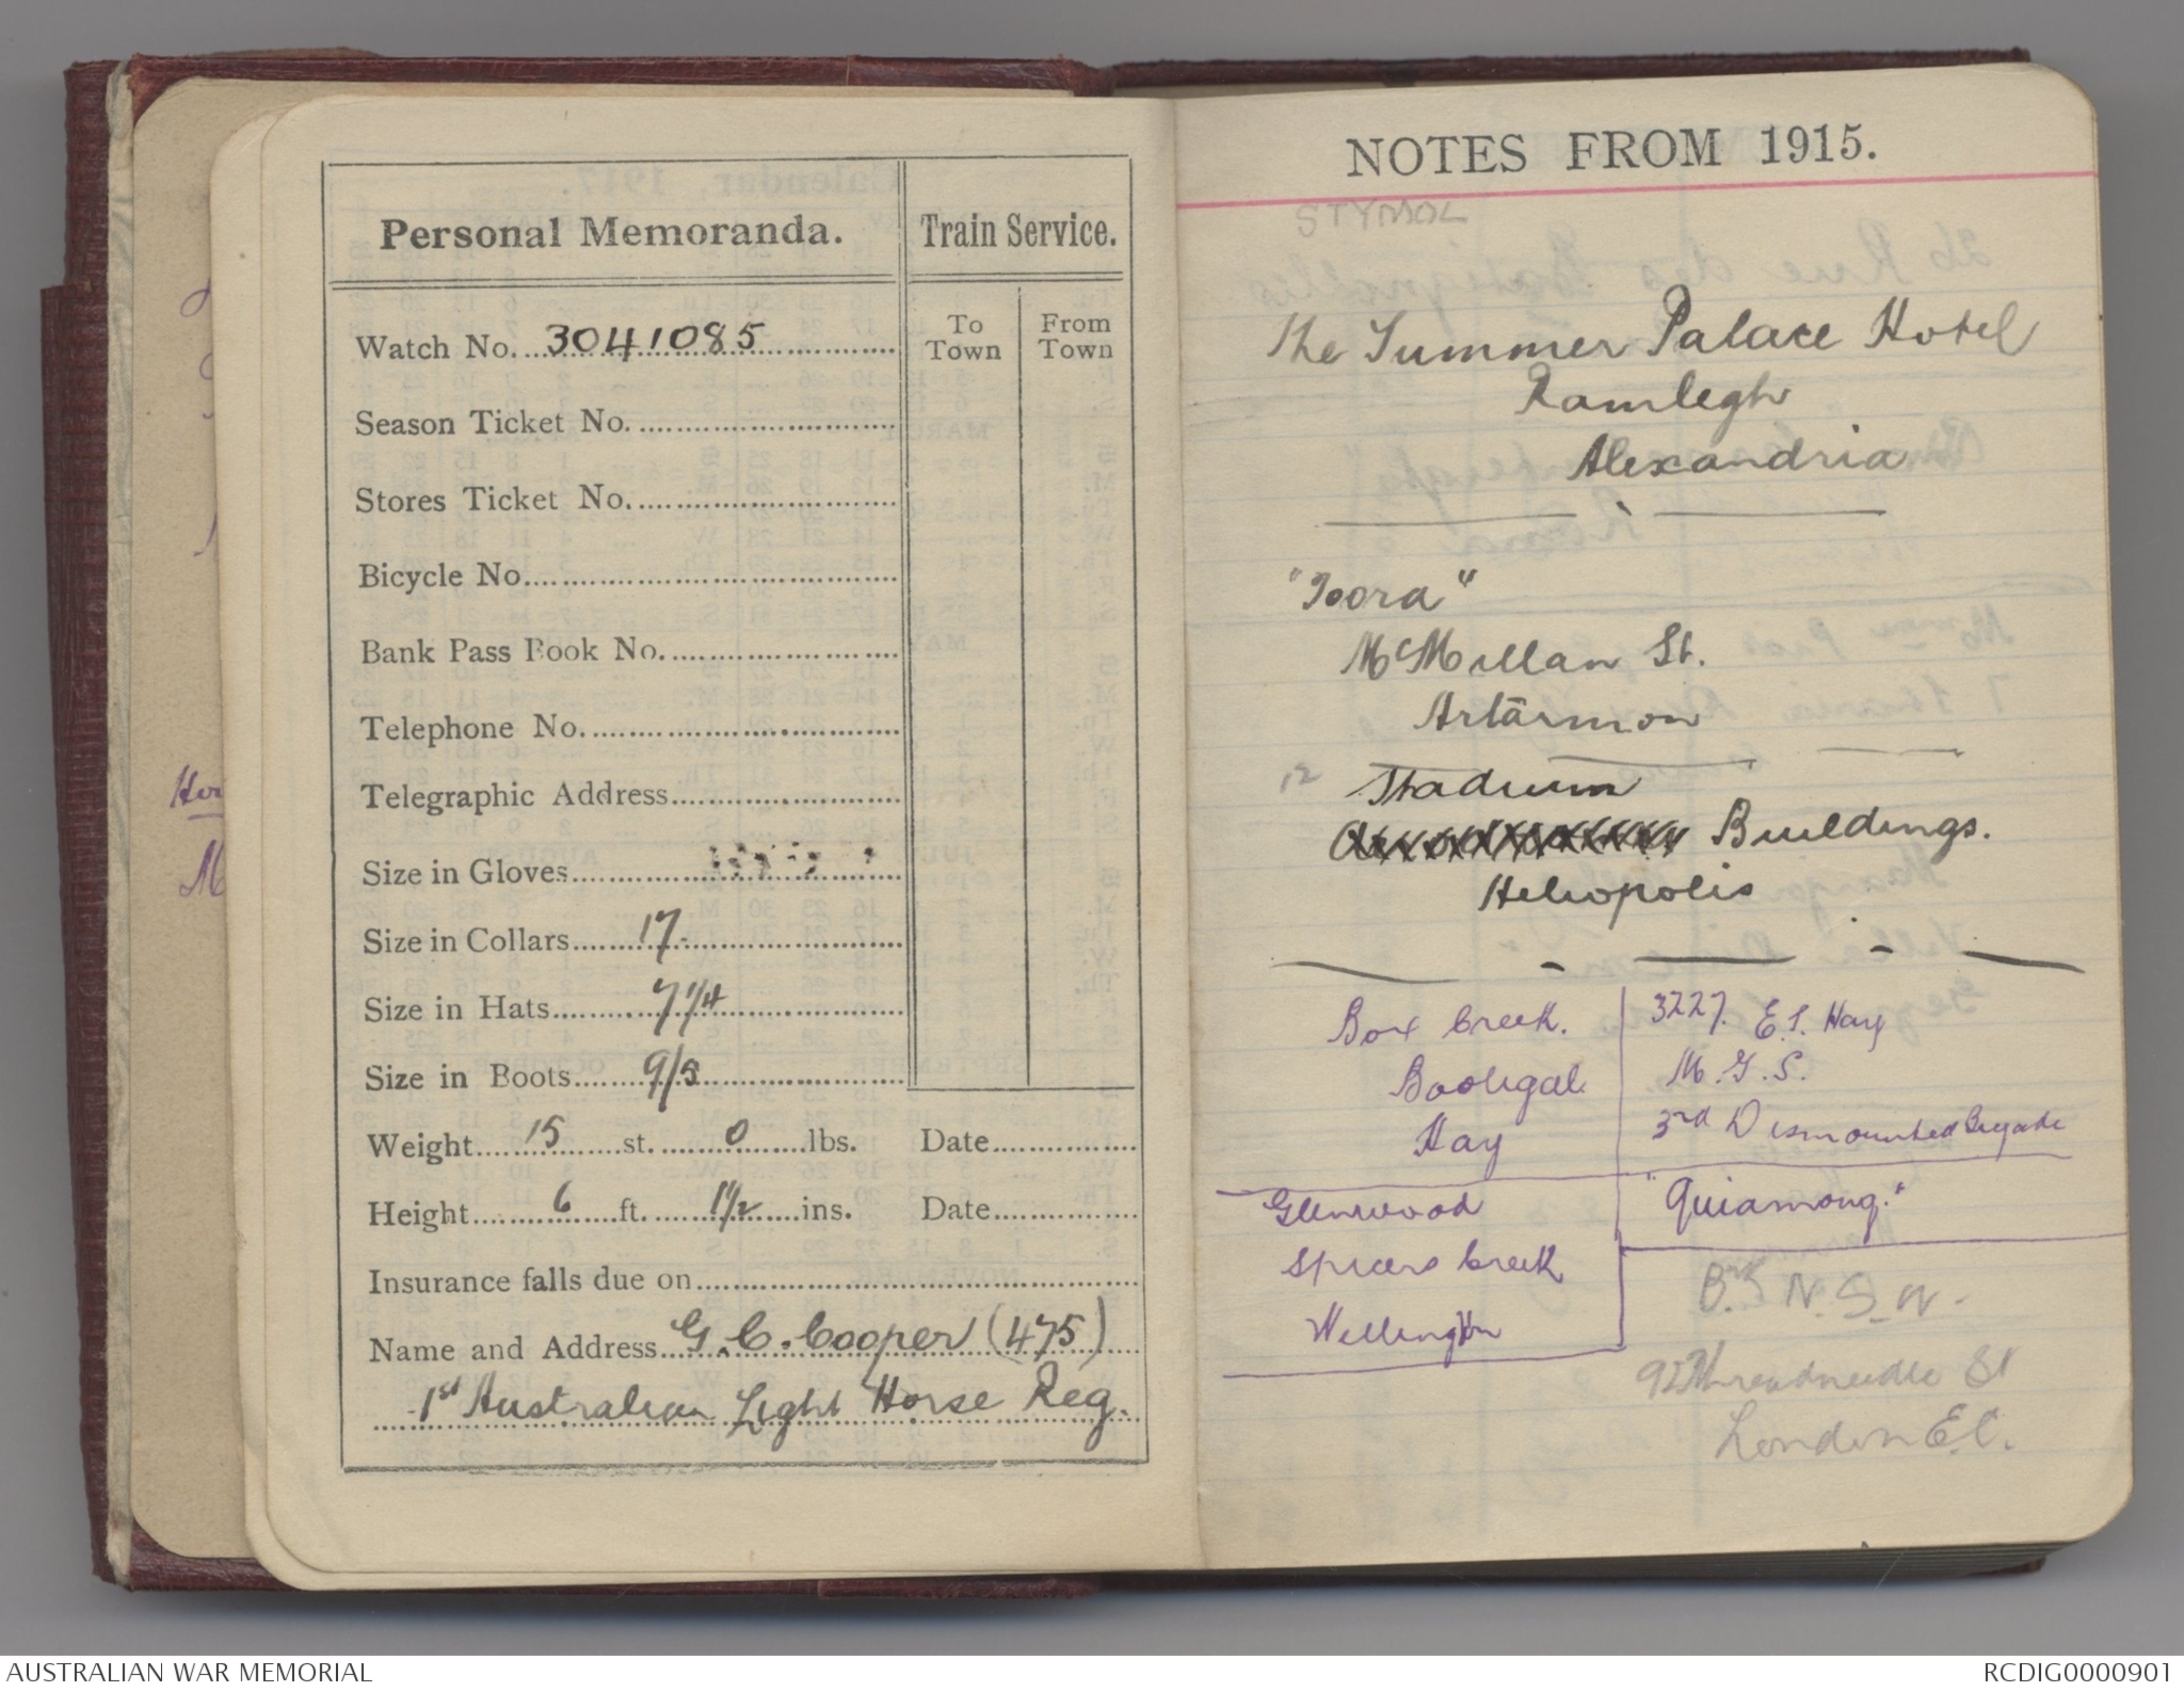 Personal Memoranda.
Train Service.
To Town
From Town
Watch No. 3041085
Season Ticket No.
Stores Ticket No.
Bicycle No.
Bank Pass Book No.
Telephone No.
Telegraphic Address
Size in Gloves
Size in Collars 17
Size in Hats 7 1/4
Size in Boots 9/5
Weight 15 st. 0 lbs. Date
Height 6 ft. 1 1/2 ins. Date
Insurance falls due on
Name and Address G. C. Cooper (475)
1st Australian Light Horse Reg.
NOTES FROM 1915.
STYMOL
The Summer Palace Hotel
Ramlegh
Alexandria
"Ioora"
McMillan St.
Artarmon
12 Stadium
Buildings.
Heliopolis
Box Creek.
Booligal
Hay
3227. E.S. Hay
M.G.S.
3rd Dismounted Brigade
Glenwood
Spicers Creek
Wellington
"Quiamong."
Bk N.S.W.
Threadneedle St
London E.C.
AUSTRALIAN WAR MEMORIAL
RCDIG0000901